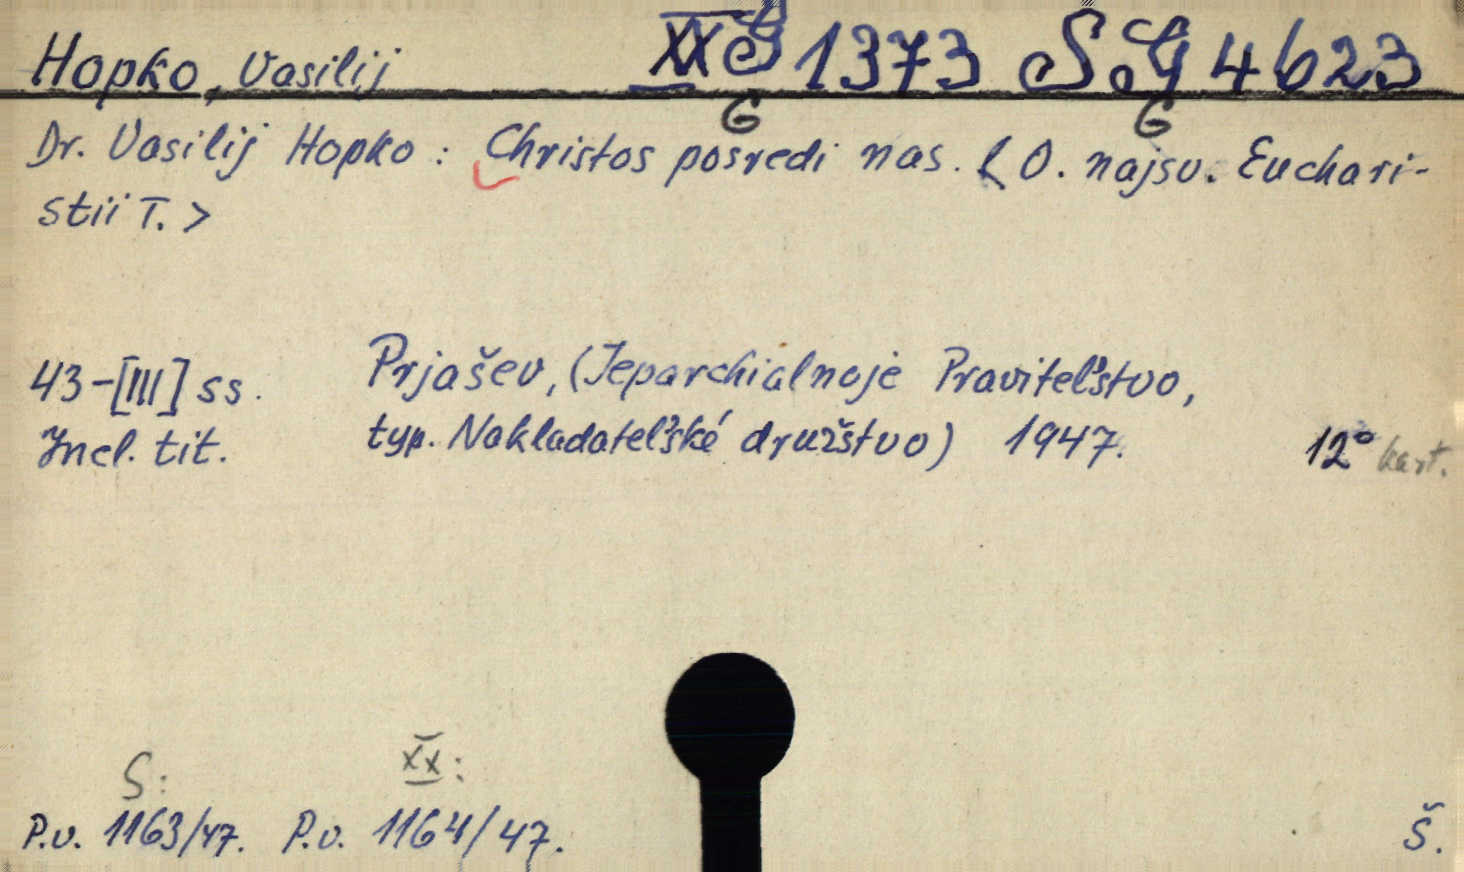 Hopko, Vasilij XX G 1373 SG 4623
G G
Dr. Vasilij Hopko : Christos posredi nas. < O. najsv. Euchari-
stii T. >
43-[III] ss. Prjašev, (Jeparchialnoje Praviteľstvo,
Incl. tit. typ. Nakladateľské družstvo) 1947. 12° kart.
S: XX:
P.v. 1163/47. P.v. 1164/47. Š.